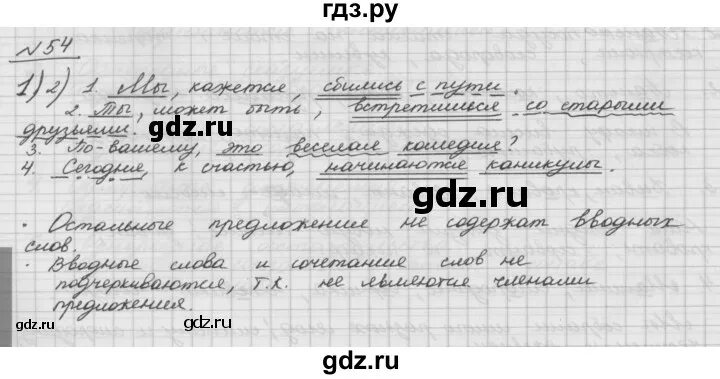 гдз.ру
№54
1) 2) 1. Мы, кажется, сбились с пути.
2. Ты, может быть, встретишься со старыми
друзьями.
gdz.ru
3. По-вашему, это веселая комедия?
gdz.ru
4. Сегодня, к счастью, начинаются каникулы.
gdz.ru
• Остальные предложения не содержат вводных
слов.
• Вводные слова и сочетания слов не
подчеркиваются, т.к. не являются членами
предложения.
gdz.ru
gdz.ru
gdz.ru